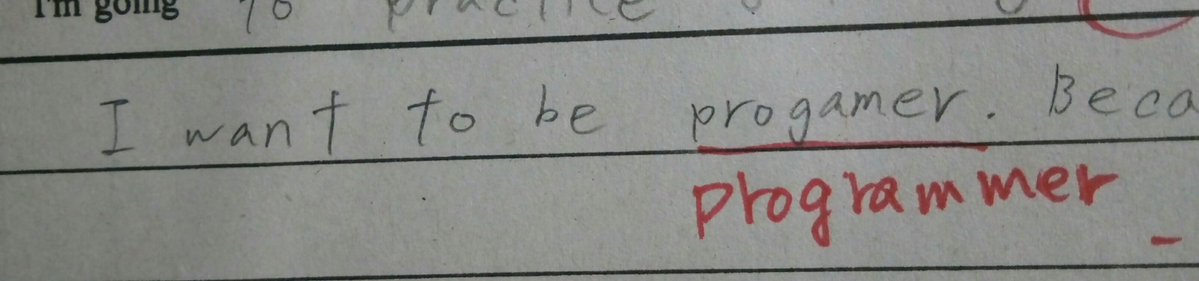 I'm going to practice
I want to be progamer. Beca
programmer